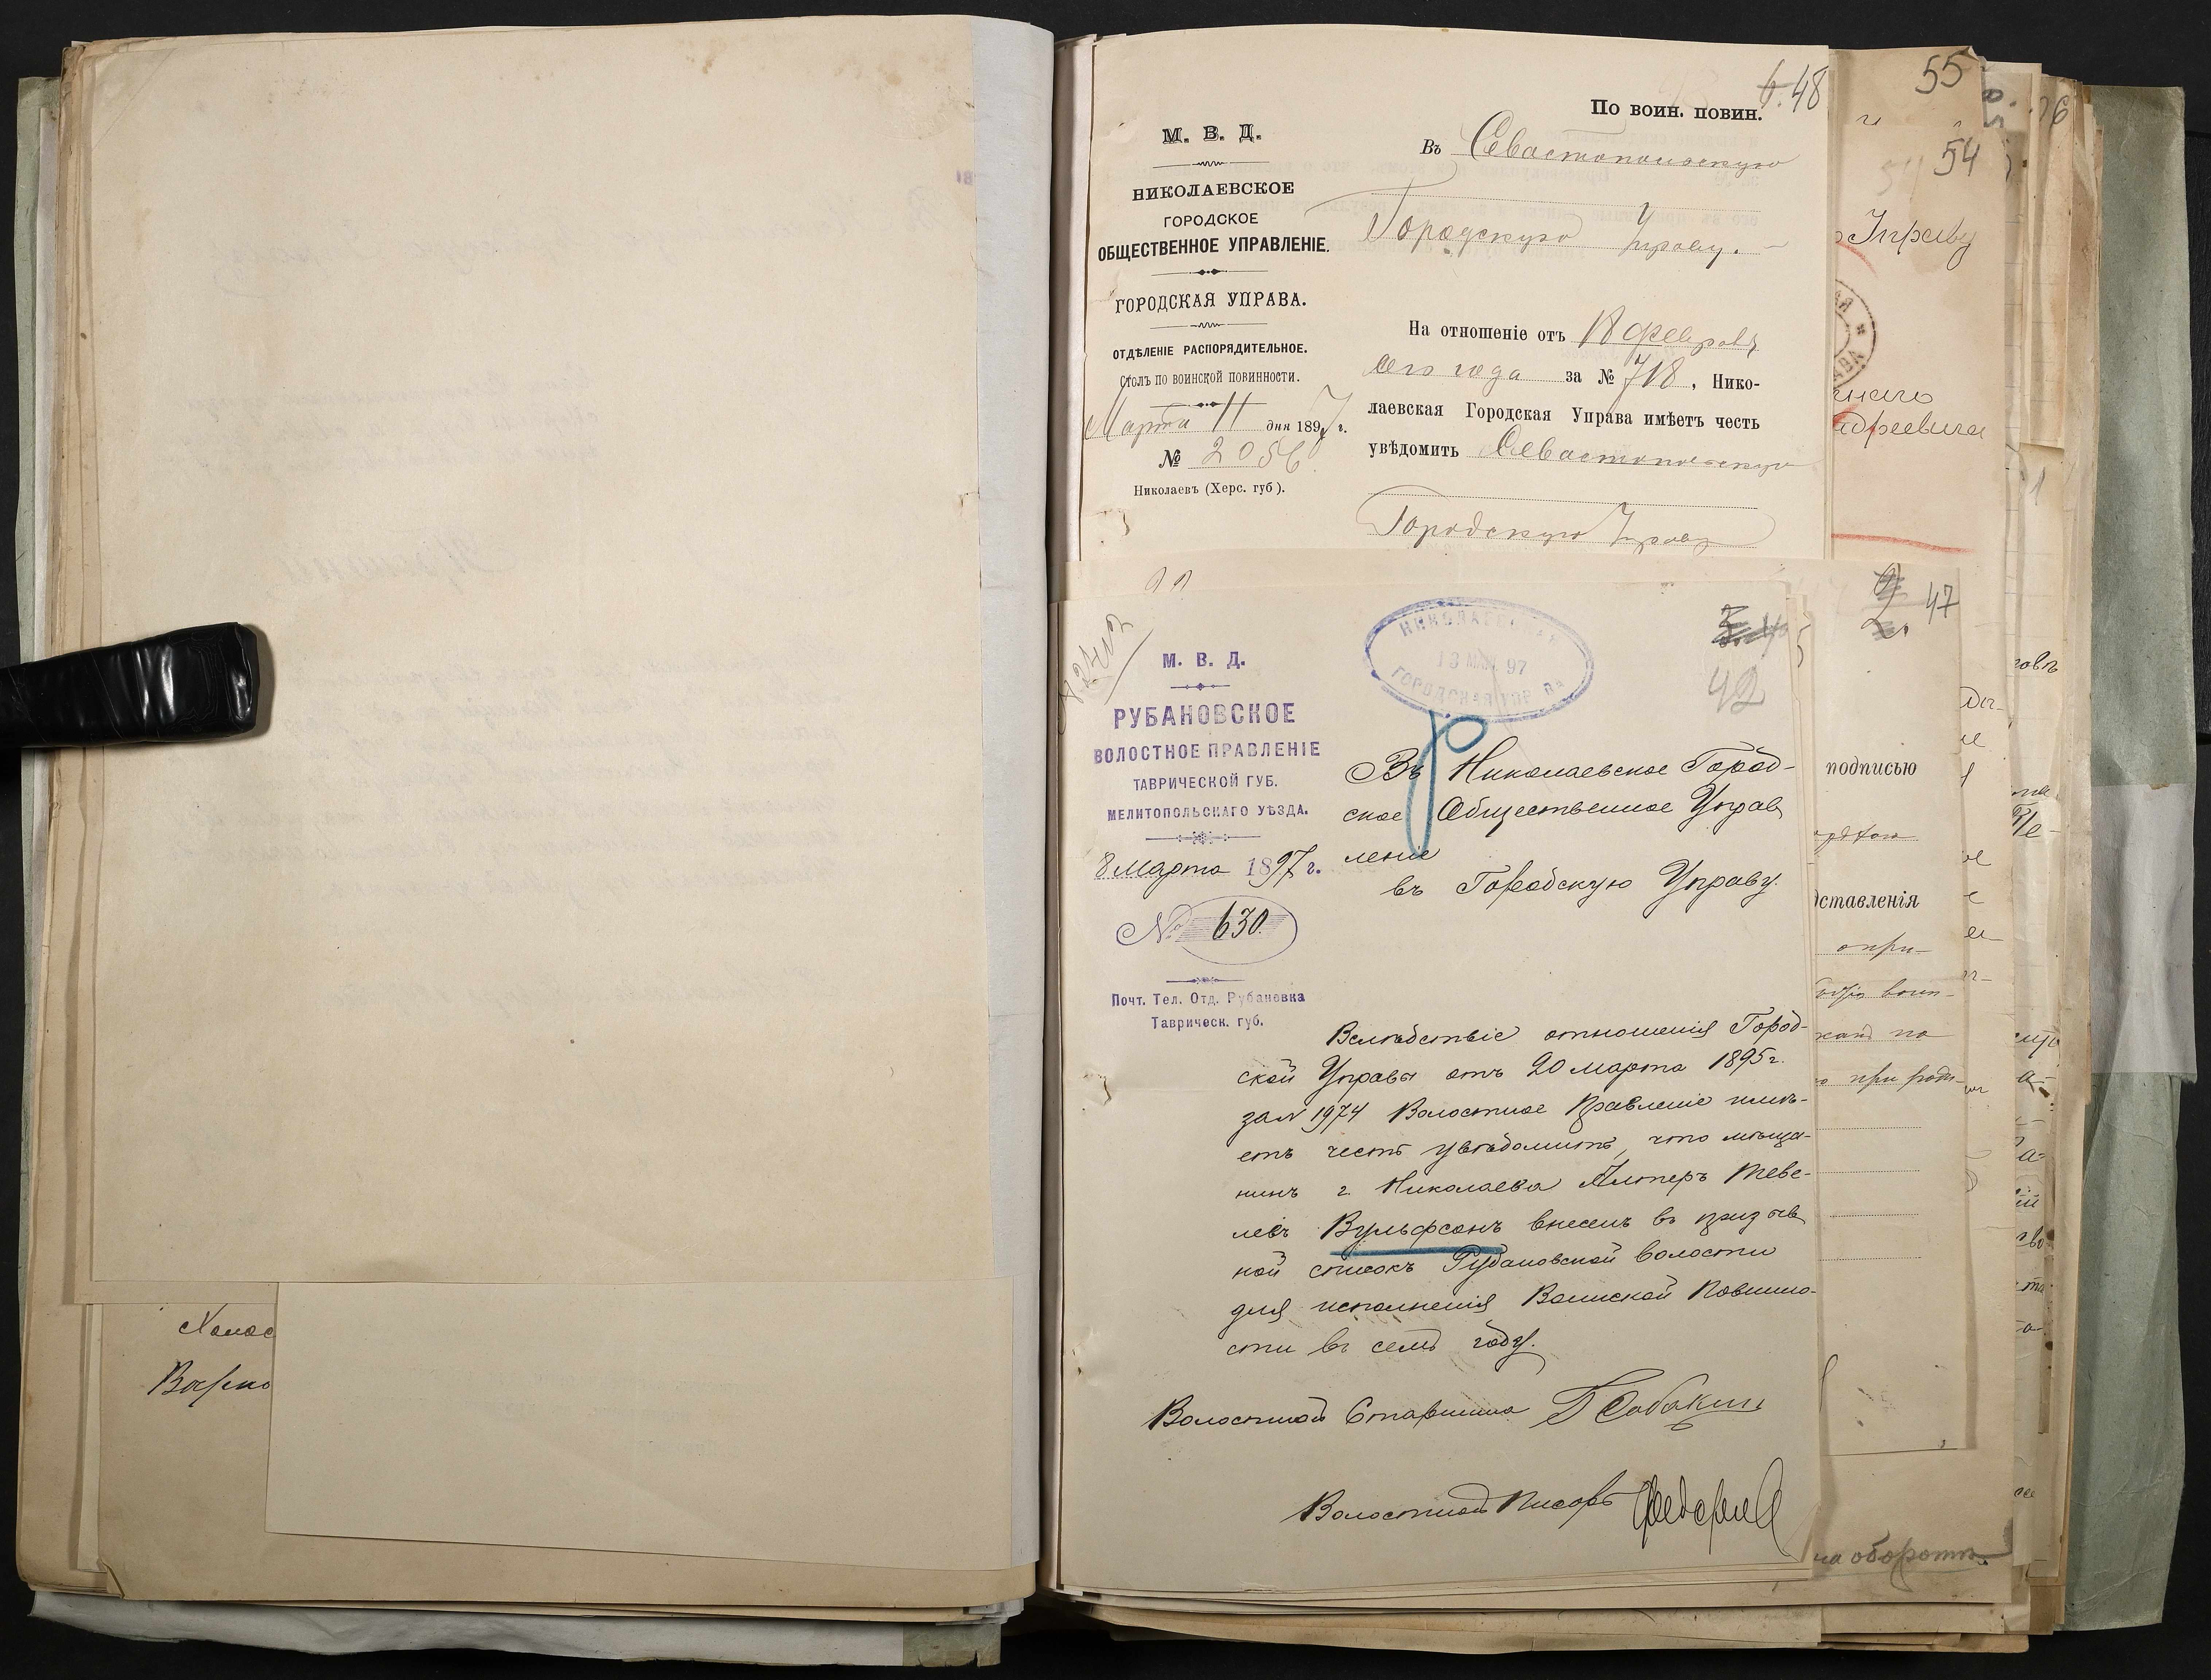 6. 48
По воин. повин.
М. В. Д.
НИКОЛАЕВСКОЕ
ГОРОДСКОЕ
ОБЩЕСТВЕННОЕ УПРАВЛЕНІЕ.
ГОРОДСКАЯ УПРАВА.
ОТДѢЛЕНІЕ РАСПОРЯДИТЕЛЬНОЕ.
Столъ по воинской повинности.
Марта 11 дня 1897 г.
№ 2056
Николаевъ (Херс. губ).
Въ Севастопольскую
Городскую Управу.
На отношеніе отъ 18 февраля
сего года за № 718, Нико-
лаевская Городская Управа имѣетъ честь
увѣдомить Севастопольскую
Городскую Управу
55
54
Управу
47
подписью
дставленія
опри-
воин-
по
при
на оборотѣ.
НИКОЛАЕВСКАЯ
13 МАР. 97
ГОРОДСКАЯ УПРАВА
42
М. В. Д.
РУБАНОВСКОЕ
ВОЛОСТНОЕ ПРАВЛЕНІЕ
ТАВРИЧЕСКОЙ ГУБ.
МЕЛИТОПОЛЬСКАГО УѢЗДА.
8 Марта 1897 г.
№ 630.
Почт. Тел. Отд. Рубановка
Таврическ. губ.
Въ Николаевское Город-
ское Общественное Управ
леніе
въ Городскую Управу.
Вслѣдствіе отношенія Город-
ской Управы отъ 20 Марта 1895 г.
за № 1974 Волостное Правленіе имѣ-
етъ честь увѣдомить, что мѣща-
нинъ г. Николаева Альтеръ Теве-
левъ Вульфсонъ внесенъ въ призыв
ной списокъ Рубановской волости
для исполненія Воинской Повинно-
сти въ семъ году.
Волостной Старшина П Собакинъ
Волостной Писарь